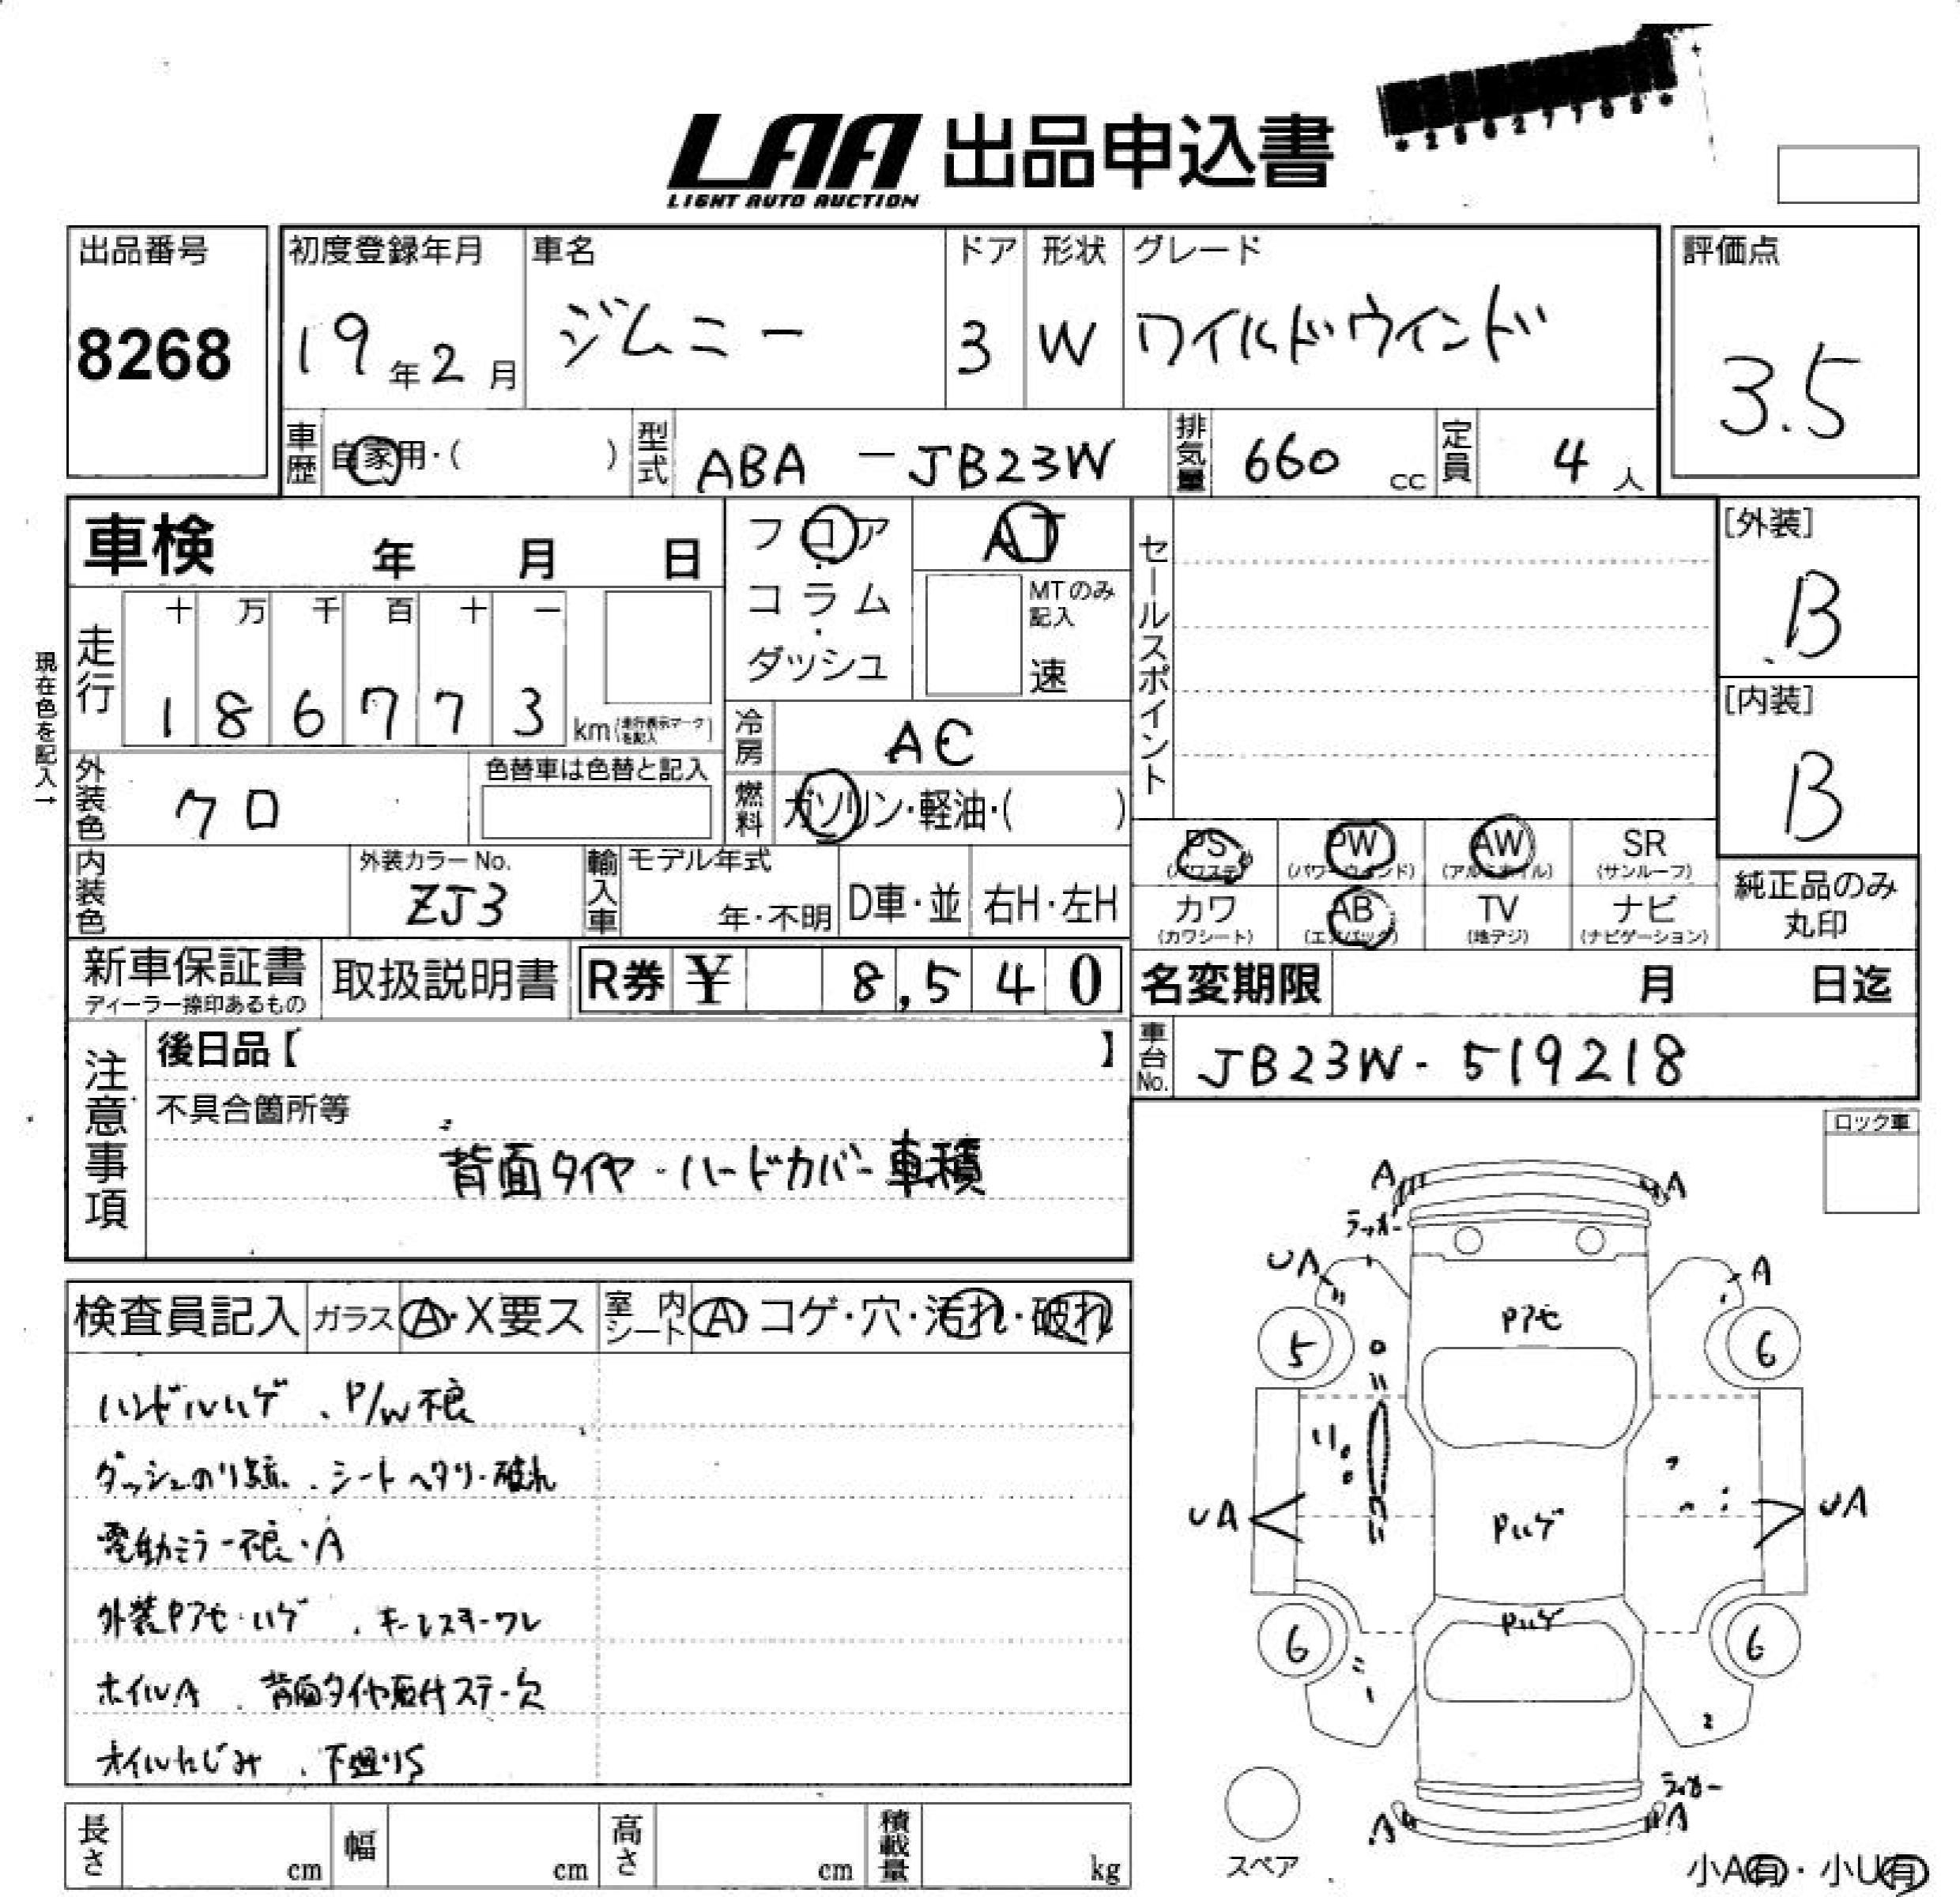 LAA 出品申込書
LIGHT AUTO AUCTION
出品番号
8268
初度登録年月
19年2月
車名
ジムニー
ドア
3
形状
W
グレード
ワイルドウインド
評価点
3.5
車歴
自家用・( )
型式
ABA-JB23W
排気量
660 cc
定員
4人
車検 年 月 日
フロア
・
コラム
・
ダッシュ
AT
MTのみ記入
速
セールスポイント
[外装]
B
[内装]
B
現在色を記入→
走行
十 万 千 百 十 一
1 8 6 7 7 3 km(走行表示マークを記入)
冷房
AC
外装色
クロ
色替車は色替と記入
燃料
ガソリン・軽油・( )
内装色
外装カラーNo.
ZJ3
輸入車
モデル年式
年・不明
D車・並
右H・左H
PS
(パワステ)
PW
(パワーウインド)
AW
(アルミホイル)
SR
(サンルーフ)
カワ
(カワシート)
AB
(エアバッグ)
TV
(地デジ)
ナビ
(ナビゲーション)
純正品のみ
丸印
新車保証書
ディーラー捺印あるもの
取扱説明書
R券 ¥ 8,540
名変期限 月 日迄
車台No.
JB23W-519218
注意事項
後日品【 】
不具合箇所等
背面タイヤ・ハードカバー車積
ロック車
検査員記入
ガラス
A・X要ス
室内シート
A コゲ・穴・汚れ・破れ
ハンドルハゲ、P/W不良
ダッシュのり跡、シートヘタリ・破れ
電動ミラー不良・A
外装Pアセ・ハゲ、キーレスキーワレ
ホイルA、背面タイヤ取付ステー欠
オイルにじみ、下廻りS
A
A
ラッカー
UA
A
Pアセ
5
6
UA
Pハゲ
UA
Pハゲ
6
6
ラッカー
A
A
スペア
小A有・小U有
長さ cm
幅 cm
高さ cm
積載量 kg